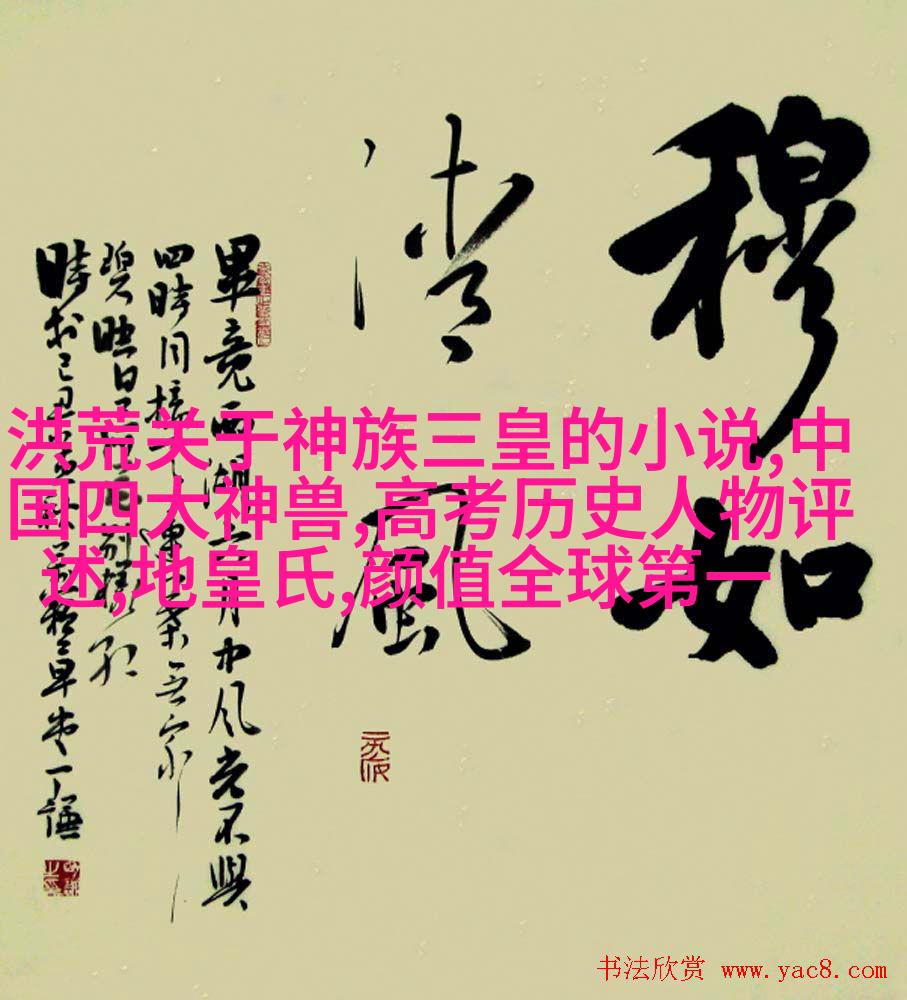 穆如
清風
畢竟西湖六月中风光不與
四時同接天蓮葉无窮
碧映日荷花别樣红
洪荒关于神族三皇的小说,中
国四大神兽,高考历史人物评
述,地皇氏,颜值全球第一
书法欣赏 www.yac8.com